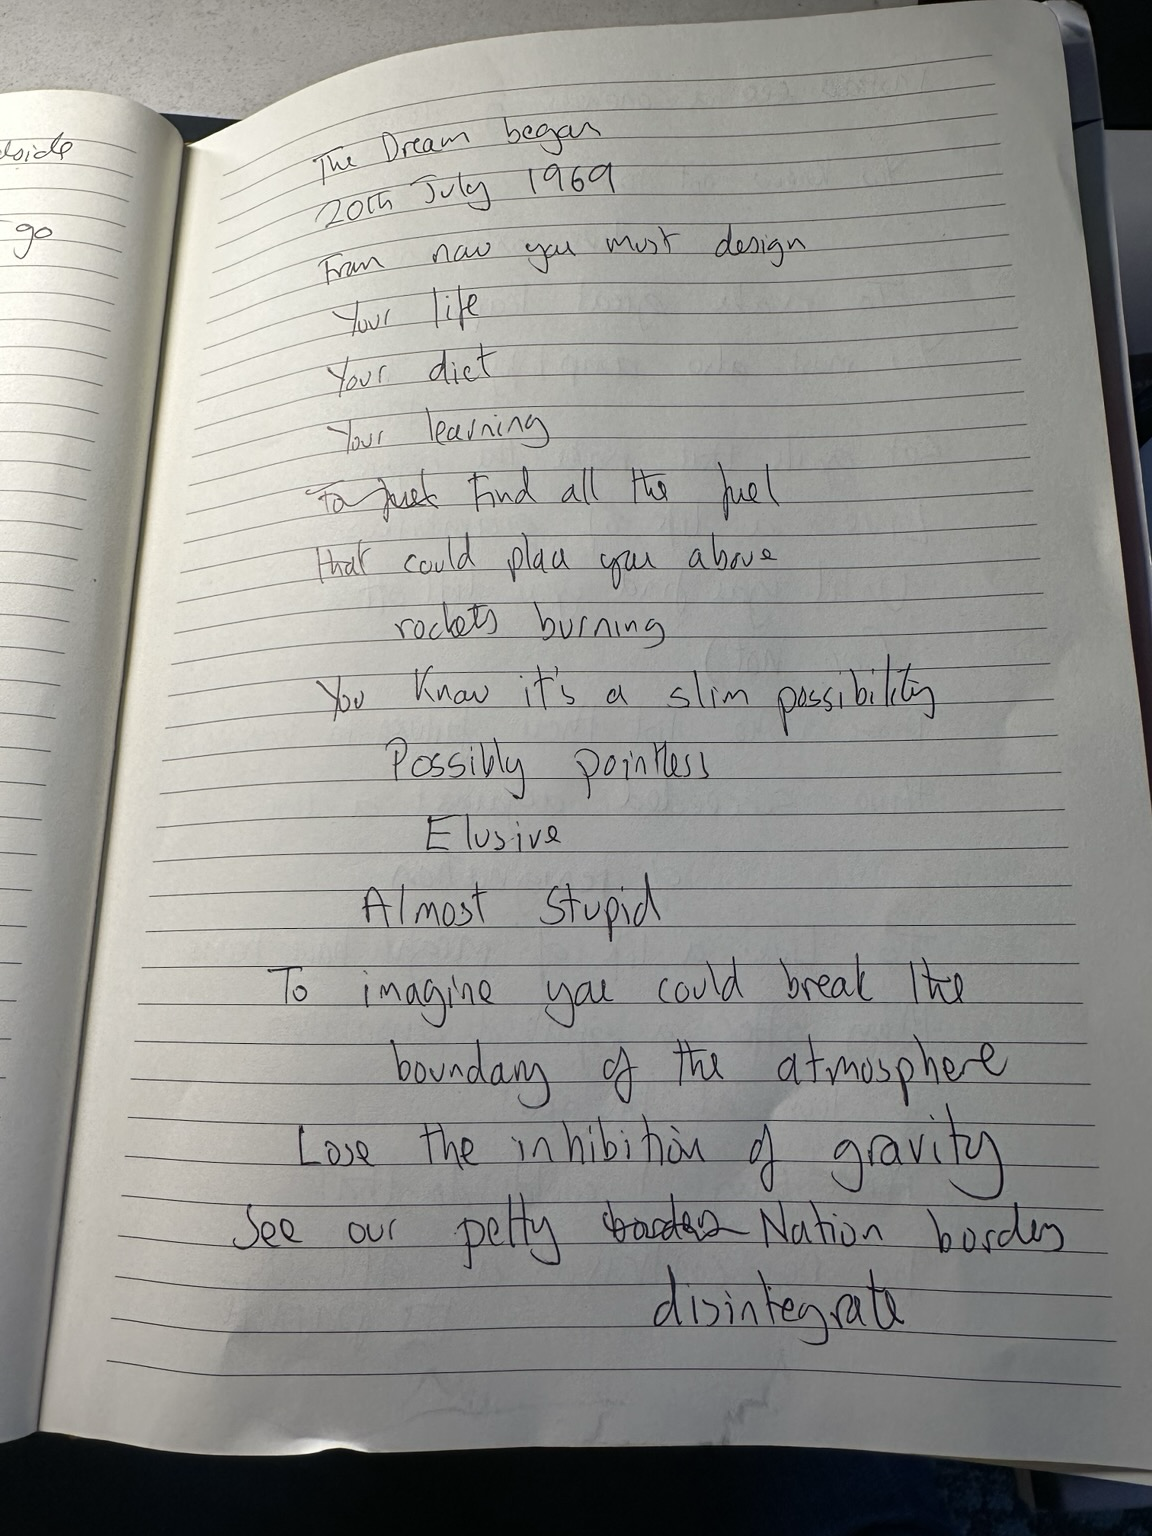 dside
go
The Dream began
20th July 1969
From now you must design
Your life
Your diet
Your learning
To just Find all the fuel
that could place you above
rockets burning
You Know it's a slim possibility
Possibly pointless
Elusive
Almost Stupid
To imagine you could break the
boundary of the atmosphere
Lose the inhibition of gravity
See our petty borders Nation borders
disintegrate